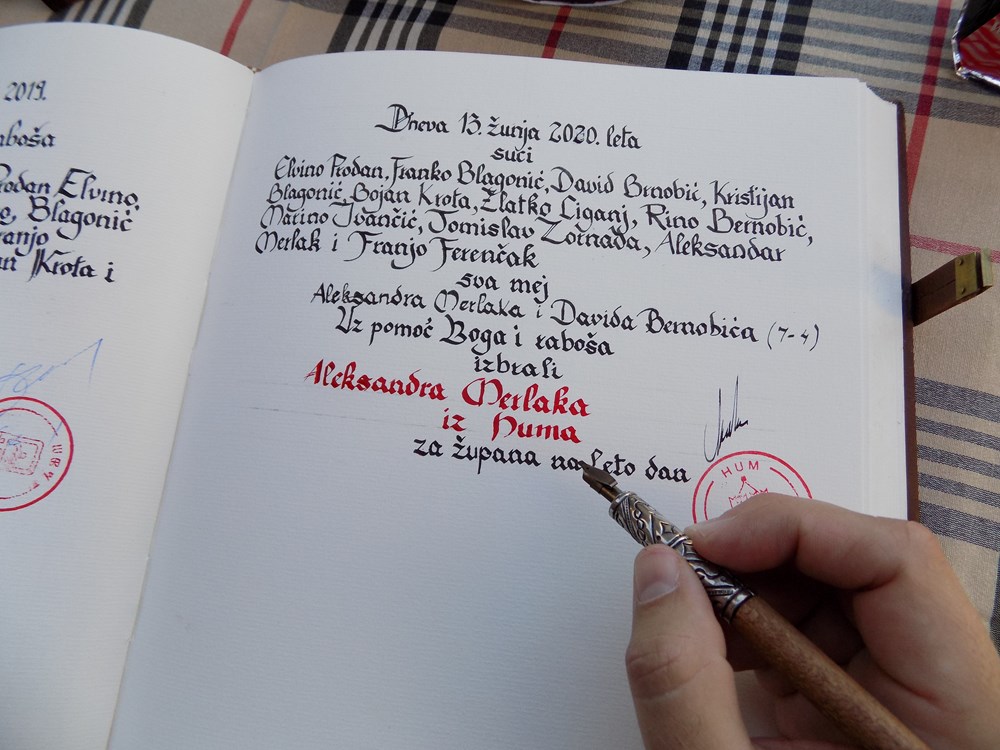 2019.
aboša
Prodan Elvino,
o, Blagonić
ranjo
an Krota i
Dneva 13. žunja 2020. leta
suci
Elvino Prodan, Franko Blagonić, David Brnobić, Kristijan
Blagonić, Bojan Krota, Zlatko Liganj, Rino Bernobić,
Marino Ivančić, Tomislav Zornada, Aleksandar
Merlak i Franjo Ferenčak
sva mej
Aleksandra Merlaka i Davida Bernobića (7-4)
Uz pomoć Boga i raboša
izbrali
Aleksandra Merlaka
iz Huma
za župana na leto dan
HUM